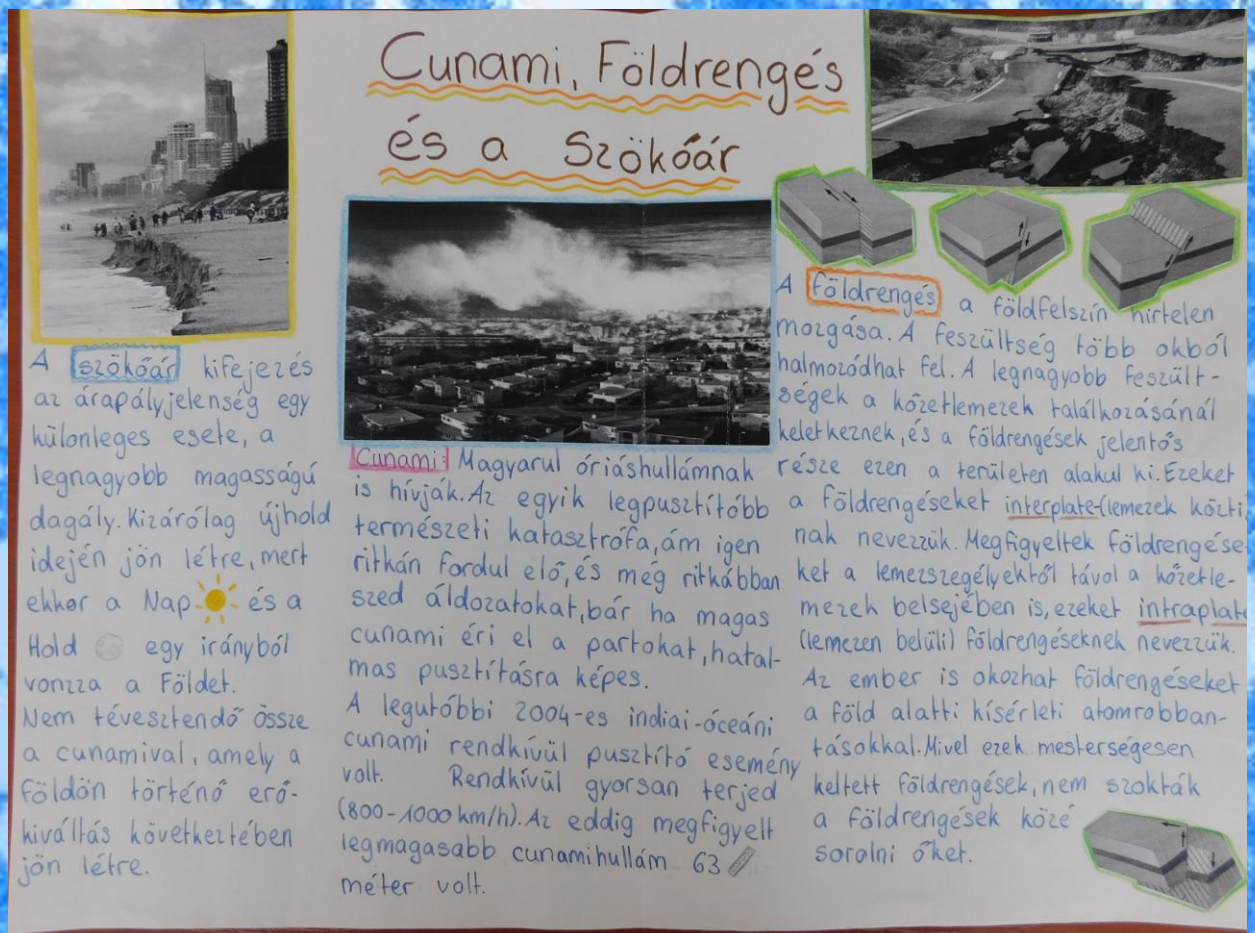 Cunami, Földrengés
és a Szökőár
A szökőár kifejezés
az árapályjelenség egy
különleges esete, a
legnagyobb magasságú
dagály. Kizárólag újhold
idején jön létre, mert
ekkor a Nap és a
Hold egy irányból
vonzza a Földet.
Nem tévesztendő össze
a cunamival, amely a
földön történő erő-
kiváltás következtében
jön létre.
Cunami: Magyarul óriáshullámnak
is hívják. Az egyik legpusztítóbb
természeti katasztrófa, ám igen
ritkán fordul elő, és még ritkábban
szed áldozatokat, bár ha magas
cunami éri el a partokat, hatal-
mas pusztításra képes.
A legutóbbi 2004-es indiai-óceáni
cunami rendkívül pusztító esemény
volt. Rendkívül gyorsan terjed
(800-1000 km/h). Az eddig megfigyelt
legmagasabb cunamihullám 63
méter volt.
A földrengés a földfelszín hirtelen
mozgása. A feszültség több okból
halmozódhat fel. A legnagyobb feszült-
ségek a kőzetlemezek találkozásánál
keletkeznek, és a földrengések jelentős
része ezen a területen alakul ki. Ezeket
a földrengéseket interplate-(lemezek közti)
nak nevezzük. Megfigyeltek földrengése
ket a lemezszegélyektől távol a kőzetle-
mezek belsejében is, ezeket intraplate
(lemezen belüli) földrengéseknek nevezzük.
Az ember is okozhat földrengéseket
a föld alatti kísérleti atomrobban-
tásokkal. Mivel ezek mesterségesen
keltett földrengések, nem szokták
a földrengések közé
sorolni őket.